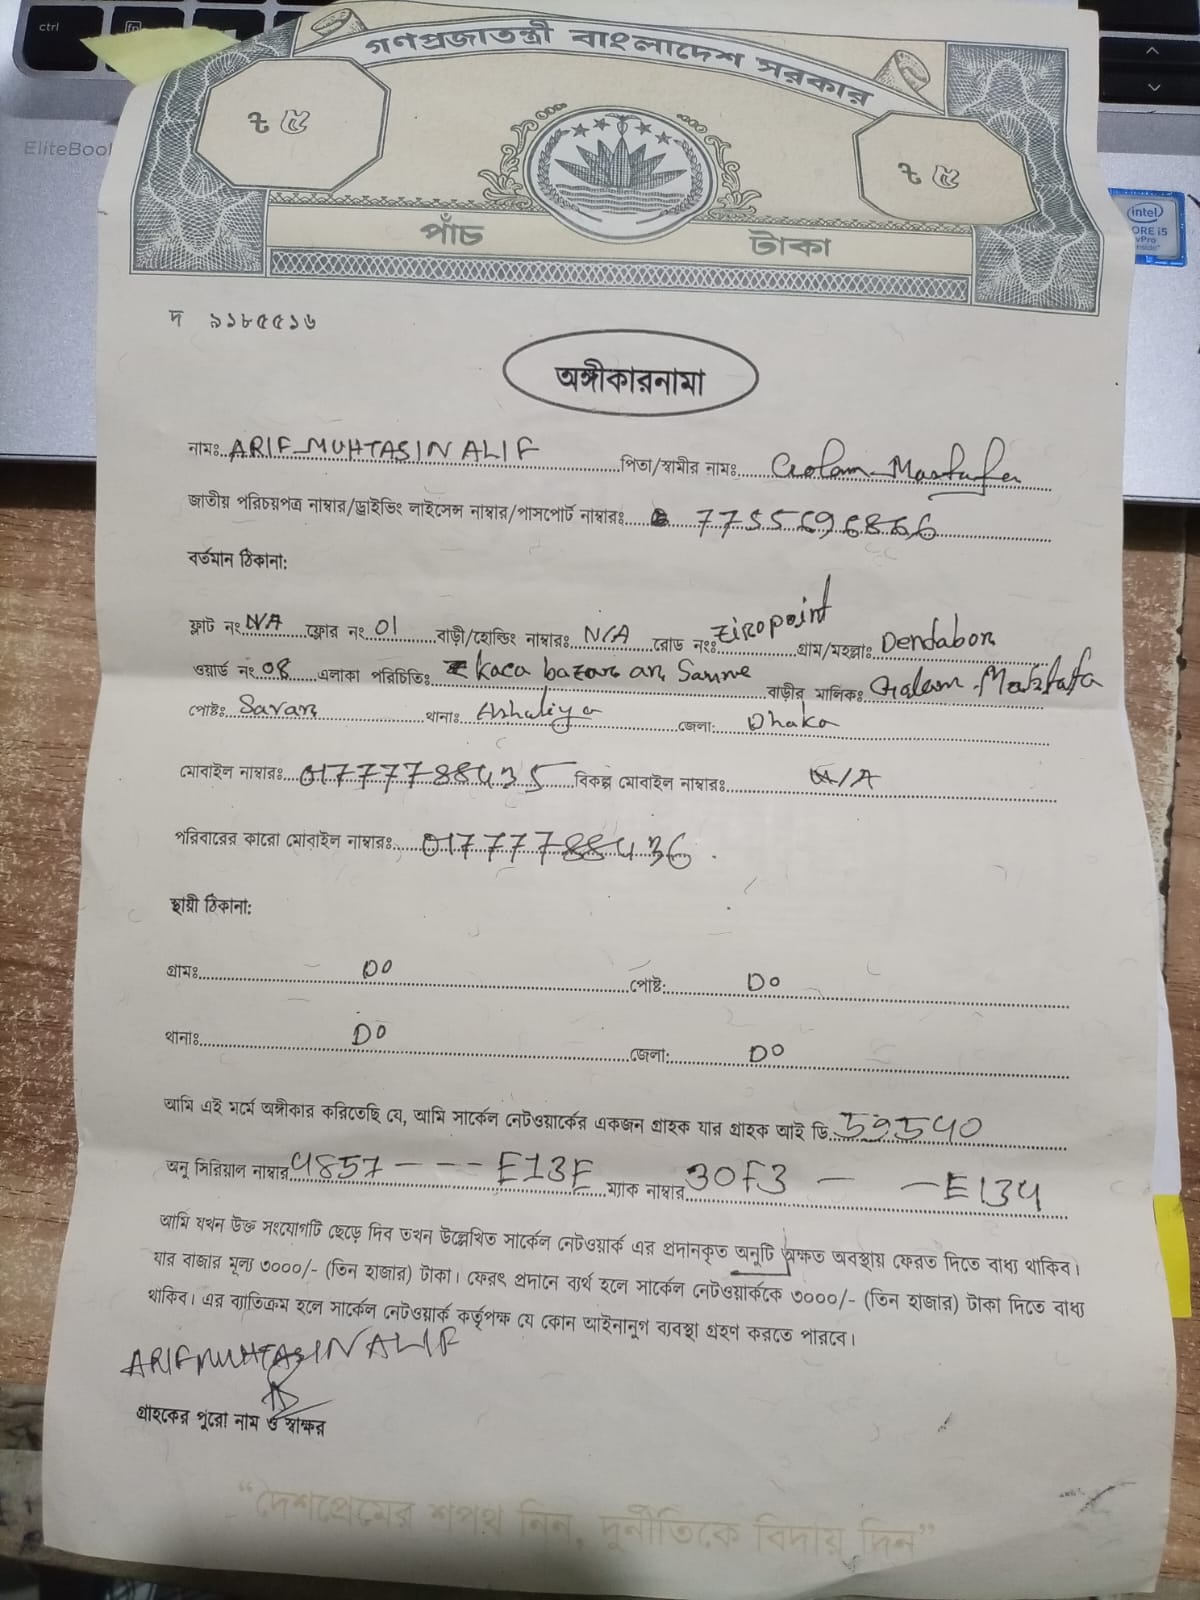 ctrl
fn
EliteBook
intel
CORE i5
vPro
inside
গণপ্রজাতন্ত্রী বাংলাদেশ সরকার
৳ ৫
৳ ৫
পাঁচ টাকা
দ ৯১৮৫৫১৬
অঙ্গীকারনামা
নামঃ ARIF MUHTASIN ALIF পিতা/স্বামীর নামঃ Golam Mostafa
জাতীয় পরিচয়পত্র নাম্বার/ড্রাইভিং লাইসেন্স নাম্বার/পাসপোর্ট নাম্বারঃ 7755696866
বর্তমান ঠিকানা:
ফ্লাট নং N/A ফ্লোর নং 01 বাড়ী/হোল্ডিং নাম্বারঃ N/A রোড নংঃ Ziropoint গ্রাম/মহল্লাঃ Dendabor
ওয়ার্ড নং 08 এলাকা পরিচিতিঃ kaca bazar ar Samne বাড়ীর মালিকঃ Golam Mostafa
পোষ্টঃ Savar থানাঃ Ashuliya জেলা: Dhaka
মোবাইল নাম্বারঃ 01777788435 বিকল্প মোবাইল নাম্বারঃ N/A
পরিবারের কারো মোবাইল নাম্বারঃ 01777788436
স্থায়ী ঠিকানা:
গ্রামঃ DO পোষ্ট: DO
থানাঃ DO জেলা: DO
আমি এই মর্মে অঙ্গীকার করিতেছি যে, আমি সার্কেল নেটওয়ার্কের একজন গ্রাহক যার গ্রাহক আই ডি 59540
অনু সিরিয়াল নাম্বার 4857 - - - E13E ম্যাক নাম্বার 30F3 - - E134
আমি যখন উক্ত সংযোগটি ছেড়ে দিব তখন উল্লেখিত সার্কেল নেটওয়ার্ক এর প্রদানকৃত অনুটি অক্ষত অবস্থায় ফেরত দিতে বাধ্য থাকিব।
যার বাজার মূল্য ৩০০০/- (তিন হাজার) টাকা। ফেরৎ প্রদানে ব্যর্থ হলে সার্কেল নেটওয়ার্ককে ৩০০০/- (তিন হাজার) টাকা দিতে বাধ্য
থাকিব। এর ব্যাতিক্রম হলে সার্কেল নেটওয়ার্ক কর্তৃপক্ষ যে কোন আইনানুগ ব্যবস্থা গ্রহণ করতে পারবে।
ARIF MUHTASIN ALIF
গ্রাহকের পুরো নাম ও স্বাক্ষর
“দেশপ্রেমের শপথ নিন, দুর্নীতিকে বিদায় দিন”